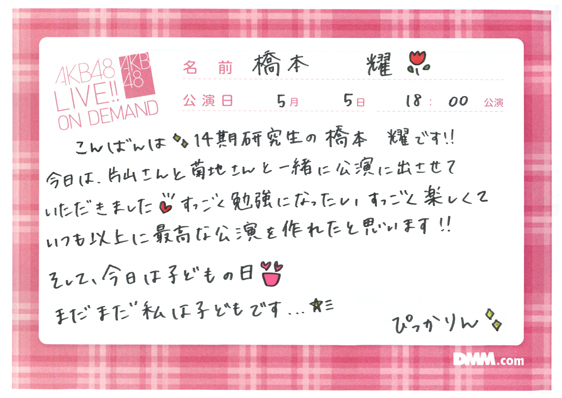 AKB48
LIVE!!
ON DEMAND
AKB
48
名前 橋本 耀
公演日 5月 5日 18:00 公演
こんばんは 14期研究生の橋本 耀です!!
今日は、片山さんと菊地さんと一緒に公演に出させて
いただきました すっごく勉強になったし、すっごく楽しくて
いつも以上に最高な公演を作れたと思います!!
そして、今日は子どもの日
まだまだ私は子どもです...
ぴっかりん
DMM.com